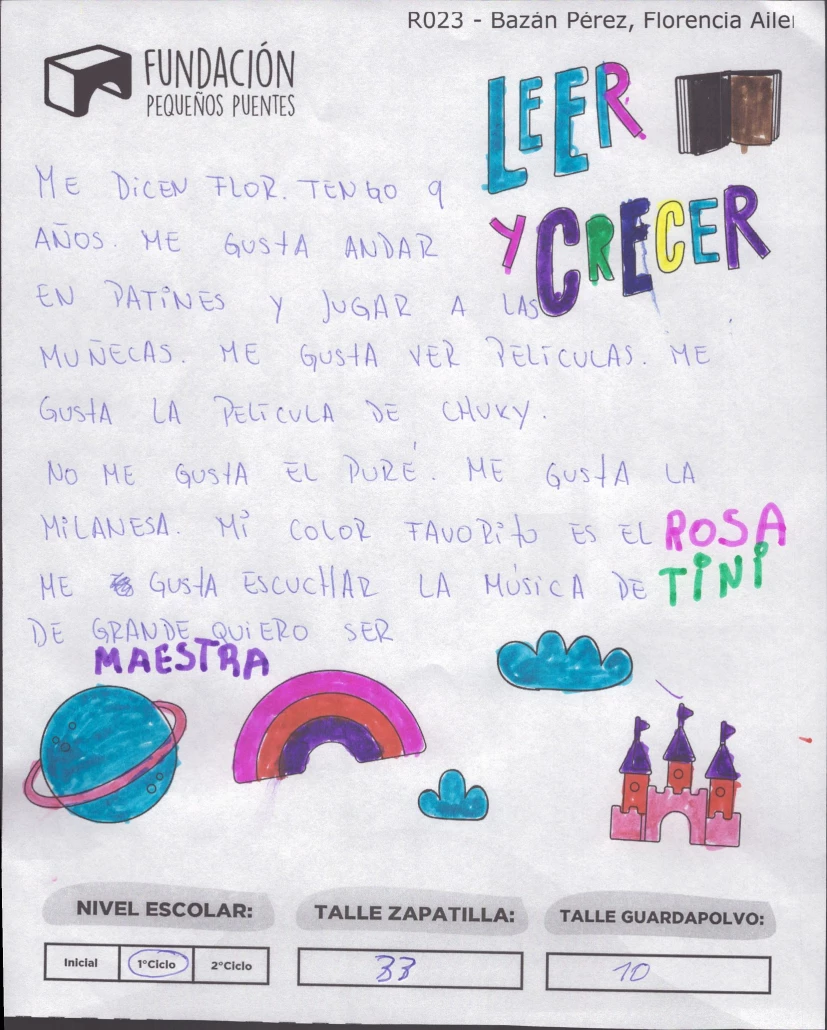 R023 - Bazán Pérez, Florencia Ailen
FUNDACIÓN
PEQUEÑOS PUENTES
LEER
Y CRECER
ME DICEN FLOR. TENGO 9
AÑOS. ME GUSTA ANDAR
EN PATINES Y JUGAR A LAS
MUÑECAS. ME GUSTA VER PELÍCULAS. ME
GUSTA LA PELÍCULA DE CHUKY.
NO ME GUSTA EL PURÉ. ME GUSTA LA
MILANESA. MI COLOR FAVORITO ES EL ROSA
ME GUSTA ESCUCHAR LA MÚSICA DE TINI
DE GRANDE QUIERO SER
MAESTRA
NIVEL ESCOLAR: TALLE ZAPATILLA: TALLE GUARDAPOLVO:
Inicial 1°Ciclo 2°Ciclo 33 10